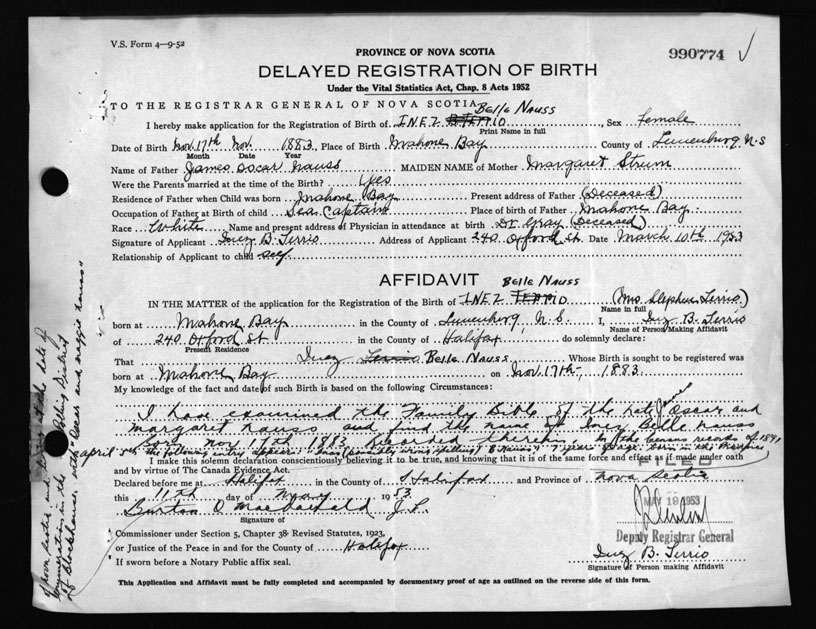 V.S. Form 4-9-52
990774 ✓
PROVINCE OF NOVA SCOTIA
DELAYED REGISTRATION OF BIRTH
Under the Vital Statistics Act, Chap. 8 Acts 1952
TO THE REGISTRAR GENERAL OF NOVA SCOTIA
Belle Nauss
I hereby make application for the Registration of Birth of INEZ B TERRIO, Sex Female
Print Name in full
Date of Birth Nov. 17th Nov. 1883, Place of Birth Mahone Bay County of Lunenburg N-S
Month Date Year
Name of Father James Oscar Nauss MAIDEN NAME of Mother Margaret Strum
Were the Parents married at the time of the Birth? Yes
Residence of Father when Child was born Mahone Bay Present address of Father (Deceased)
Occupation of Father at Birth of child Sea Captain Place of birth of Father Mahone Bay
Race White Name and present address of Physician in attendance at birth Dr Gray (Deceased)
Signature of Applicant Inez B. Terrio Address of Applicant 240 Oxford St. Date March 10th 1953
Relationship of Applicant to child self
AFFIDAVIT
Belle Nauss
IN THE MATTER of the application for the Registration of the Birth of INEZ TERRIO (Mrs Stephen Terrio)
Name in full
born at Mahone Bay in the County of Lunenburg, N.S. I, Inez B. Terrio
Name of Person Making Affidavit
of 240 Oxford St in the County of Halifax do solemnly declare:
Present Residence
That Inez Terrio Belle Nauss Whose Birth is sought to be registered was
born at Mahone Bay on Nov. 17th, 1883.
My knowledge of the fact and date of such Birth is based on the following Circumstances:
I have examined the Family Bible of the late James Oscar and
Margaret Nauss and find the name of Inez Belle Nauss
Born Nov 17th 1883 Recorded therein. In the census records of 1891
april 5th the following entry appears: (possibly wrong spelling) Nauss 7 years of age born in the Province
I make this solemn declaration conscientiously believing it to be true, and knowing that it is of the same force and effect as if made under oath
and by virtue of The Canada Evidence Act.
FILED
Declared before me at Halifax in the County of Halifax and Province of Nova Scotia
this 11th day of May 1953
MAY 19 1953
Burton O MacDonald J.P.
Signature of
Deputy Registrar General
Commissioner under Section 5, Chapter 38 Revised Statutes, 1923,
or Justice of the Peace in and for the County of Halifax
Inez B. Terrio
If sworn before a Notary Public affix seal.
Signature of Person making Affidavit
This Application and Affidavit must be fully completed and accompanied by documentary proof of age as outlined on the reverse side of this form.
of Nova Scotia, and living at the date of
enumeration in the Polling District
of Blockhouse, with Oscar and Maggie Nauss"